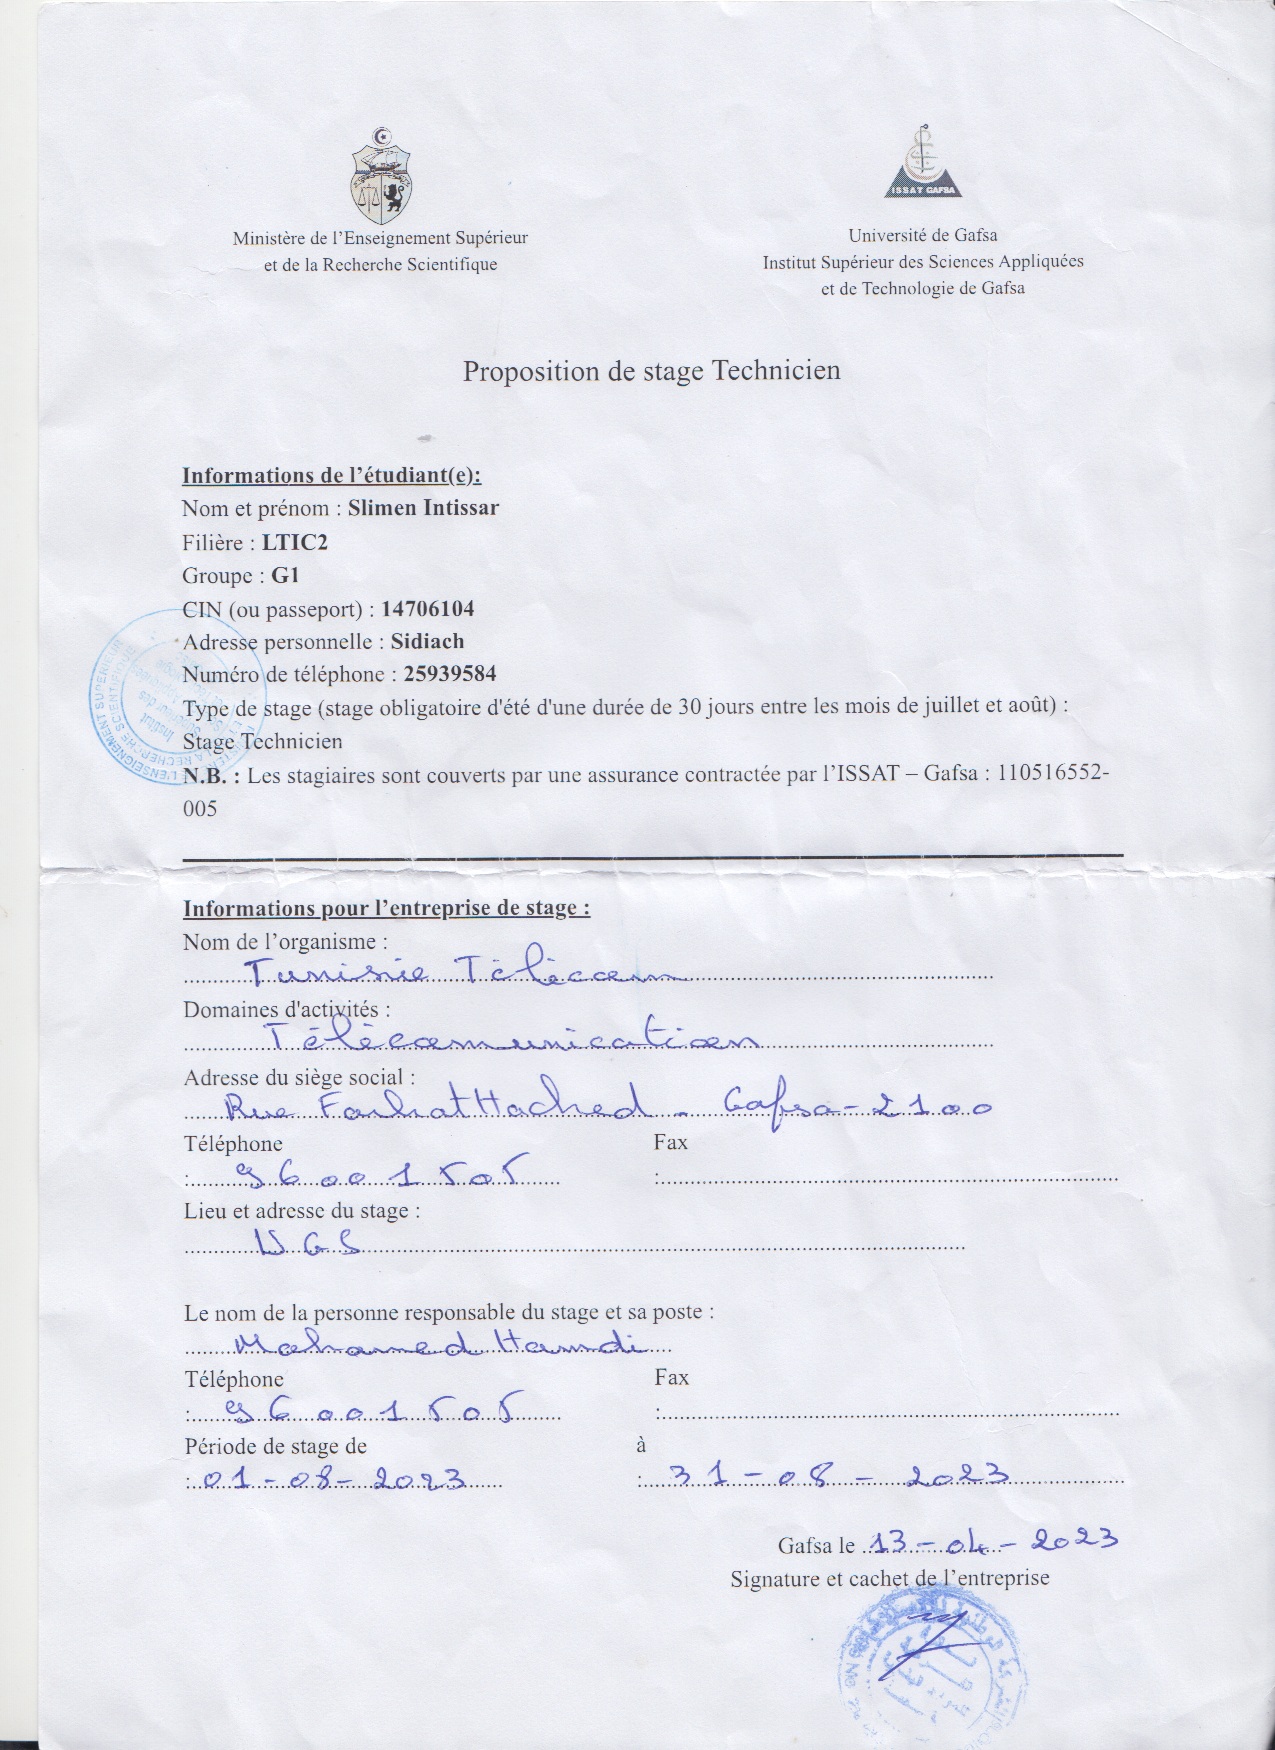 ISSAT GAFSA
Ministère de l’Enseignement Supérieur
et de la Recherche Scientifique
Université de Gafsa
Institut Supérieur des Sciences Appliquées
et de Technologie de Gafsa
Proposition de stage Technicien
Informations de l’étudiant(e):
Nom et prénom : Slimen Intissar
Filière : LTIC2
Groupe : G1
CIN (ou passeport) : 14706104
Adresse personnelle : Sidiach
Numéro de téléphone : 25939584
Type de stage (stage obligatoire d'été d'une durée de 30 jours entre les mois de juillet et août) :
Stage Technicien
N.B. : Les stagiaires sont couverts par une assurance contractée par l’ISSAT – Gafsa : 110516552-
005
Informations pour l’entreprise de stage :
Nom de l’organisme :
Tunisie Télécom
Domaines d'activités :
Télécomunication
Adresse du siège social :
Rue Farhat Hached - Gafsa - 2100
Téléphone Fax
: 96001505 :
Lieu et adresse du stage :
UGS
Le nom de la personne responsable du stage et sa poste :
Mohamed Hamdi
Téléphone Fax
: 96001505 :
Période de stage de à
: 01-08-2023 : 31-08-2023
Gafsa le 13-04-2023
Signature et cachet de l’entreprise